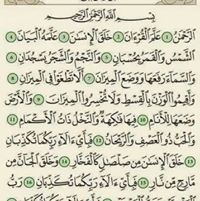 بِسْمِ اللَّهِ الرَّحْمَٰنِ الرَّحِيمِ
الرَّحْمَٰنُ ١ عَلَّمَ الْقُرْآنَ ٢ خَلَقَ الْإِنسَٰنَ ٣ عَلَّمَهُ الْبَيَانَ ٤
الشَّمْسُ وَالْقَمَرُ بِحُسْبَانٍ ٥ وَالنَّجْمُ وَالشَّجَرُ يَسْجُدَانِ ٦
وَالسَّمَاءَ رَفَعَهَا وَوَضَعَ الْمِيزَانَ ٧ أَلَّا تَطْغَوْا فِي الْمِيزَانِ ٨
وَأَقِيمُوا الْوَزْنَ بِالْقِسْطِ وَلَا تُخْسِرُوا الْمِيزَانَ ٩ وَالْأَرْضَ
وَضَعَهَا لِلْأَنَامِ ١٠ فِيهَا فَٰكِهَةٌ وَالنَّخْلُ ذَاتُ الْأَكْمَامِ ١١
وَالْحَبُّ ذُو الْعَصْفِ وَالرَّيْحَانُ ١٢ فَبِأَيِّ آلَاءِ رَبِّكُمَا تُكَذِّبَانِ
١٣ خَلَقَ الْإِنسَٰنَ مِن صَلْصَٰلٍ كَالْفَخَّارِ ١٤ وَخَلَقَ الْجَانَّ مِن
مَّارِجٍ مِّن نَّارٍ ١٥ فَبِأَيِّ آلَاءِ رَبِّكُمَا تُكَذِّبَانِ ١٦ رَبُّ